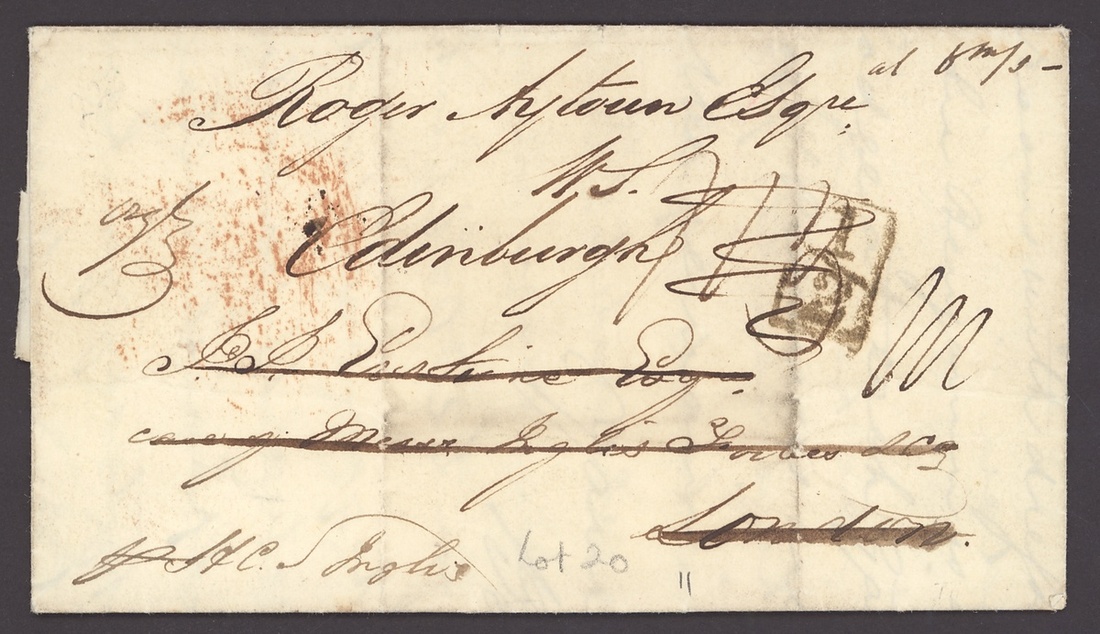 Roger Aytoun Esqre
W.S.
Edinburgh
1/2
J. J. Erskine Esqr.
care of Messrs Inglis Forbes & Co
London.
p H.C.S Inglis
Lot 20